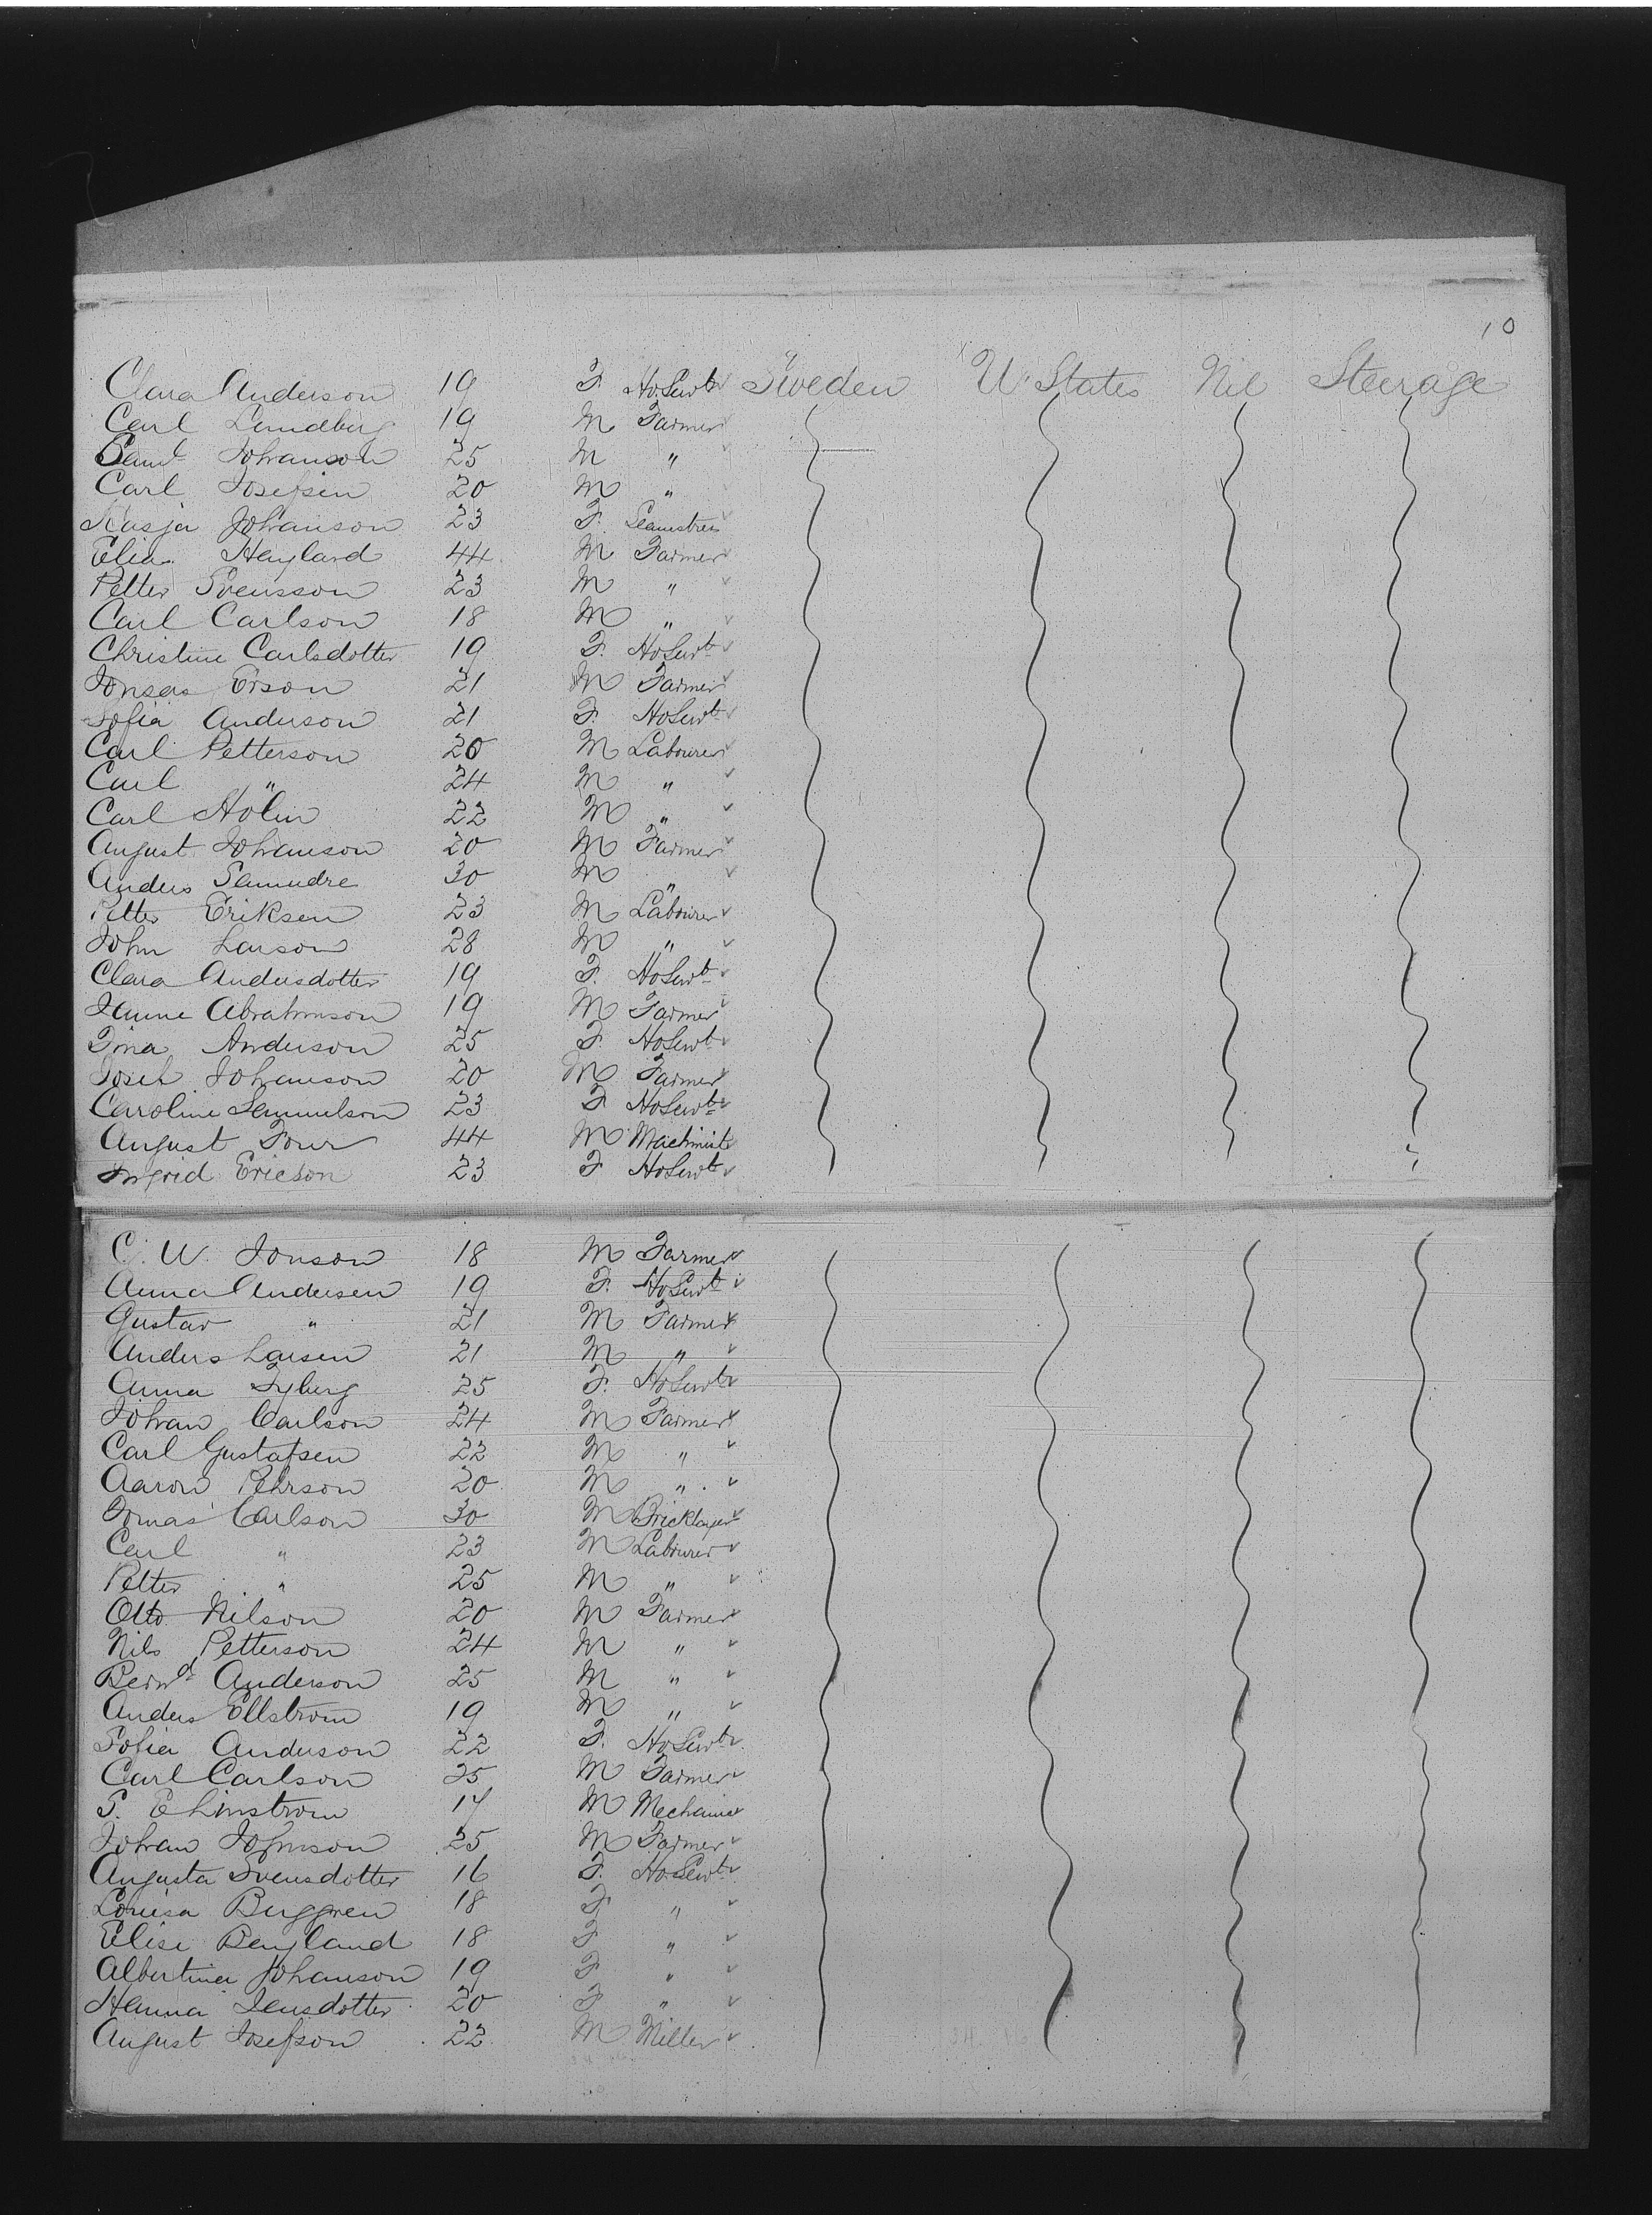 10
Clara Anderson 19 F. Ho. Servt Sweden U. States Nil Steerage
Carl Lundberg 19 M Farmer
Saml Johanson 25 M "
Carl Josefsen 20 M "
Kasja Johanson 23 F. Seamstress
Elias Hayland 44 M Farmer
Petter Svensson 23 M "
Carl Carlson 18 M "
Christine Carlsdotter 19 F. Ho Servt
Jonsas Erson 21 M Farmer
Sofia Anderson 21 F. Ho Servt
Carl Petterson 20 M Labourer
Carl " 24 M "
Carl Holm 22 M "
August Johanson 20 M Farmer
Anders 30 M "
Petter Eriksen 23 M Labourer
John Larson 28 M "
Clara Andersdotter 19 F. Ho Servt
Janne Abrahmson 19 M Farmer
Tina Anderson 25 F Ho Servt
Joseh Johanson 20 M Farmer
Caroline Samuelson 23 F Ho Servt
August Four 44 M Machinist
Ingrid Ericson 23 F Ho Servt
C. W. Jonson 18 M Farmer
Anna Andersen 19 F. Ho Servt
Gustav " 21 M Farmer
Anders Larsen 21 M "
Anna Fyberg 25 F. Ho Servt
Johan Carlson 24 M Farmer
Carl Gustafsen 22 M "
Aaron Pehrson 20 M "
Jonas Carlson 30 M Bricklayer
Carl " 23 M Labourer
Petter " 25 M "
Otto Nilson 20 M Farmer
Nils Petterson 24 M "
Bernd Anderson 25 M "
Anders Ellstrom 19 M "
Sofia Anderson 22 F. Ho Servt
Carl Carlson 25 M Farmer
P. Elimstrom 17 M Mechanic
Johan Johnson 25 M Farmer
Augusta Svensdotter 16 F. Ho Servt
Louisa Berggren 18 F "
Elise Bengland 18 F "
Albertina Johanson 19 F "
Hanna Jensdotter 20 F "
August Josefson 22 M Miller